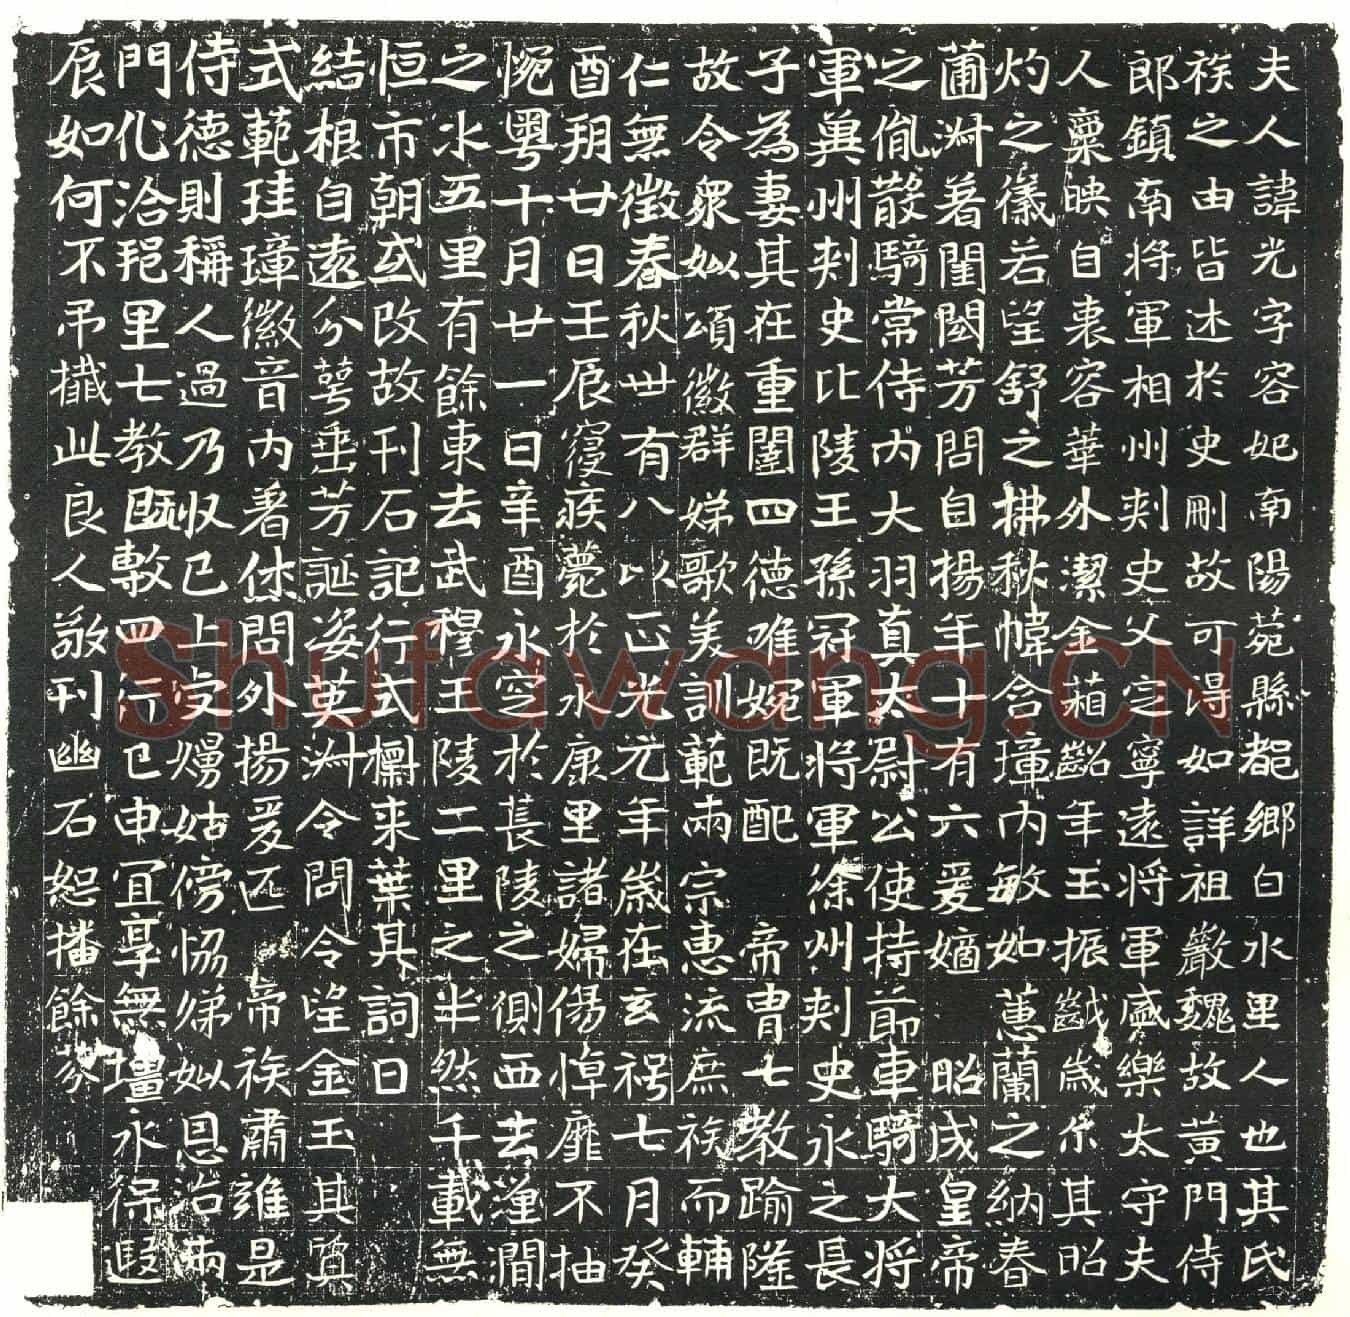 夫人諱光字容妃南陽菀縣都鄉白水里人也其氏
族之由皆述於史刪故可得如詳祖巖魏故黃門侍
郎鎮南將軍相州刾史父定寧遠將軍盛樂太守夫
人稟映自衷容華外潔金蘋齠年玉振齔歲尒其昭
灼之儀若望舒之拂秋幃含璋內敏如蕙蘭之納春
圃淵著閨閫芳問自揚年十有六爰嫡 昭成皇帝
之胤散騎常侍內大羽真太尉公使持節車騎大將
軍兾州刾史比陵王孫冠軍將軍徐州刾史永之長
子為妻其在重闈四德难婉既配 帝胄七教踰隆
故令衆姒頌徽群娣歌美訓範兩宗惠流庶族而輔
仁無徵春秋卅有八以正光元年歲在玄枵七月癸
酉玥廿日壬辰寢疾薨於永康里諸婦傷悼靡不抽
惋粤十月廿一日辛酉永窆於萇陵之側西去瀍澗
之水五里有餘東去武穆王陵二里之半然千載無
恒市朝或改故刊石記行式櫚来葉其詞曰
結根自遠分萼垂芳誕姿英淵令問令望金玉其質
式範珪璋徽音內著休問外揚爰匹 帝族肅雍是
侍德則稱人過乃收已上安嫚姑傍協娣姒恩洽兩
門化洽邑里七教既敷四行已申冝享無壃永保遐
辰如何不弔攕此良人敬刊幽石恕播餘芬
Shufawang.CN